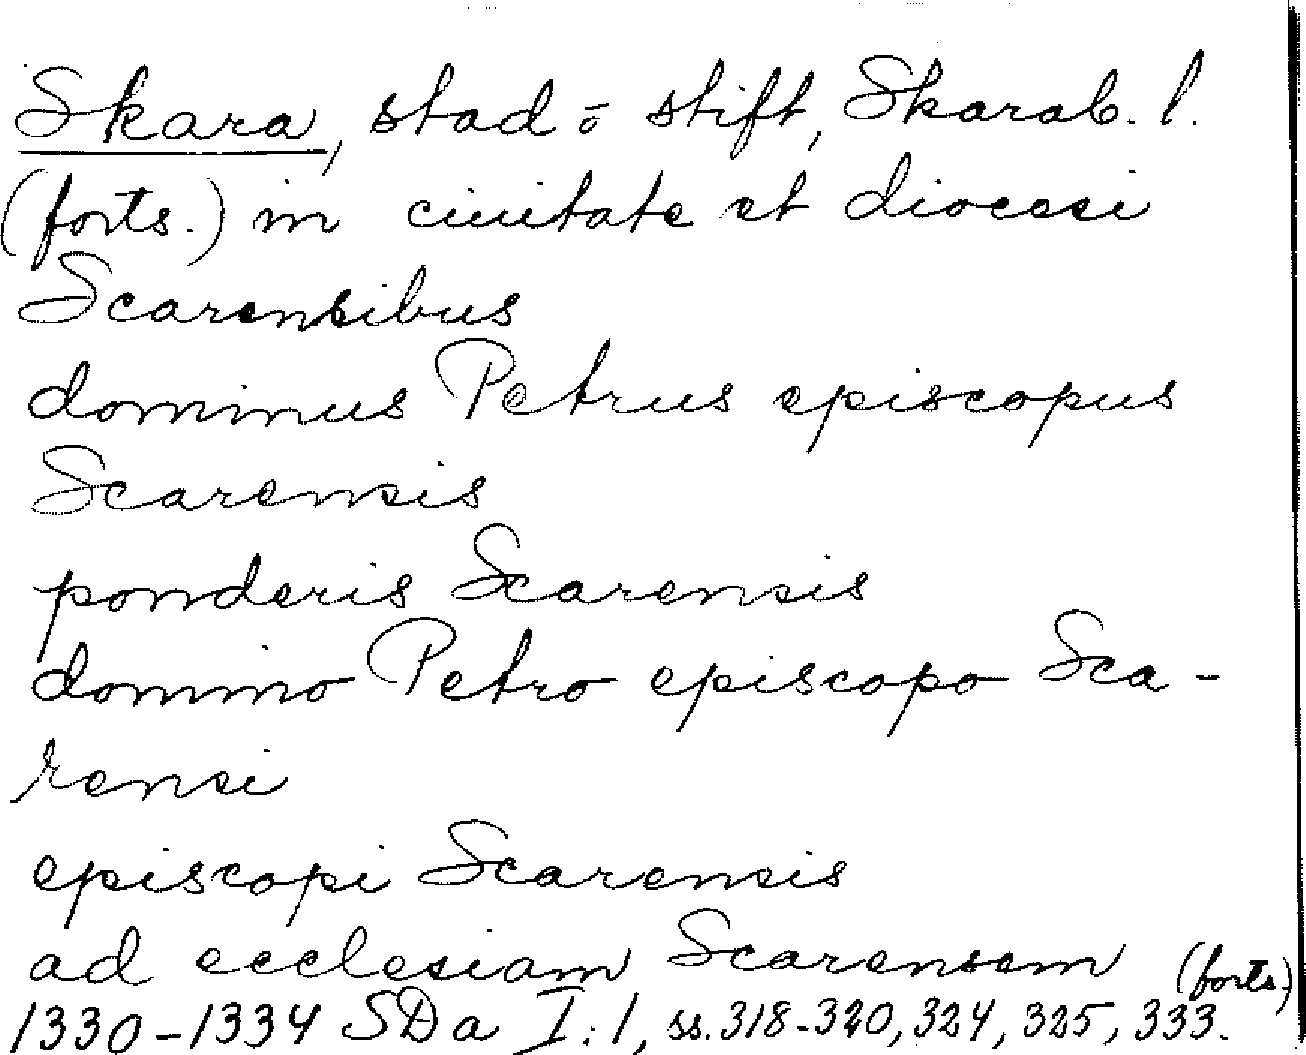 Skara, stad o stift, Skarab. l.
(forts.) in ciuitate et diocesi
Scarensibus
dominus Petrus episcopus
Scarensis
ponderis Scarensis
domino Petro episcopo Sca-
rensi
episcopi Scarensis
ad ecclesiam Scarensem (forts.)
1330-1334 SDa I:1, ss. 318-320, 324, 325, 333.